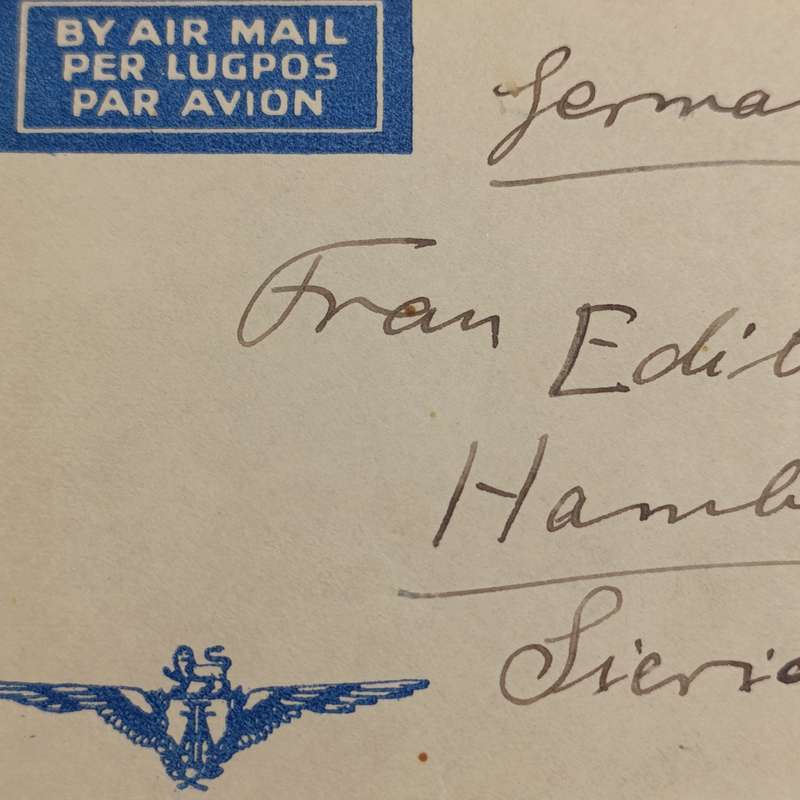 BY AIR MAIL
PER LUGPOS
PAR AVION
Germa
Frau Edit
Hamb
Sieri